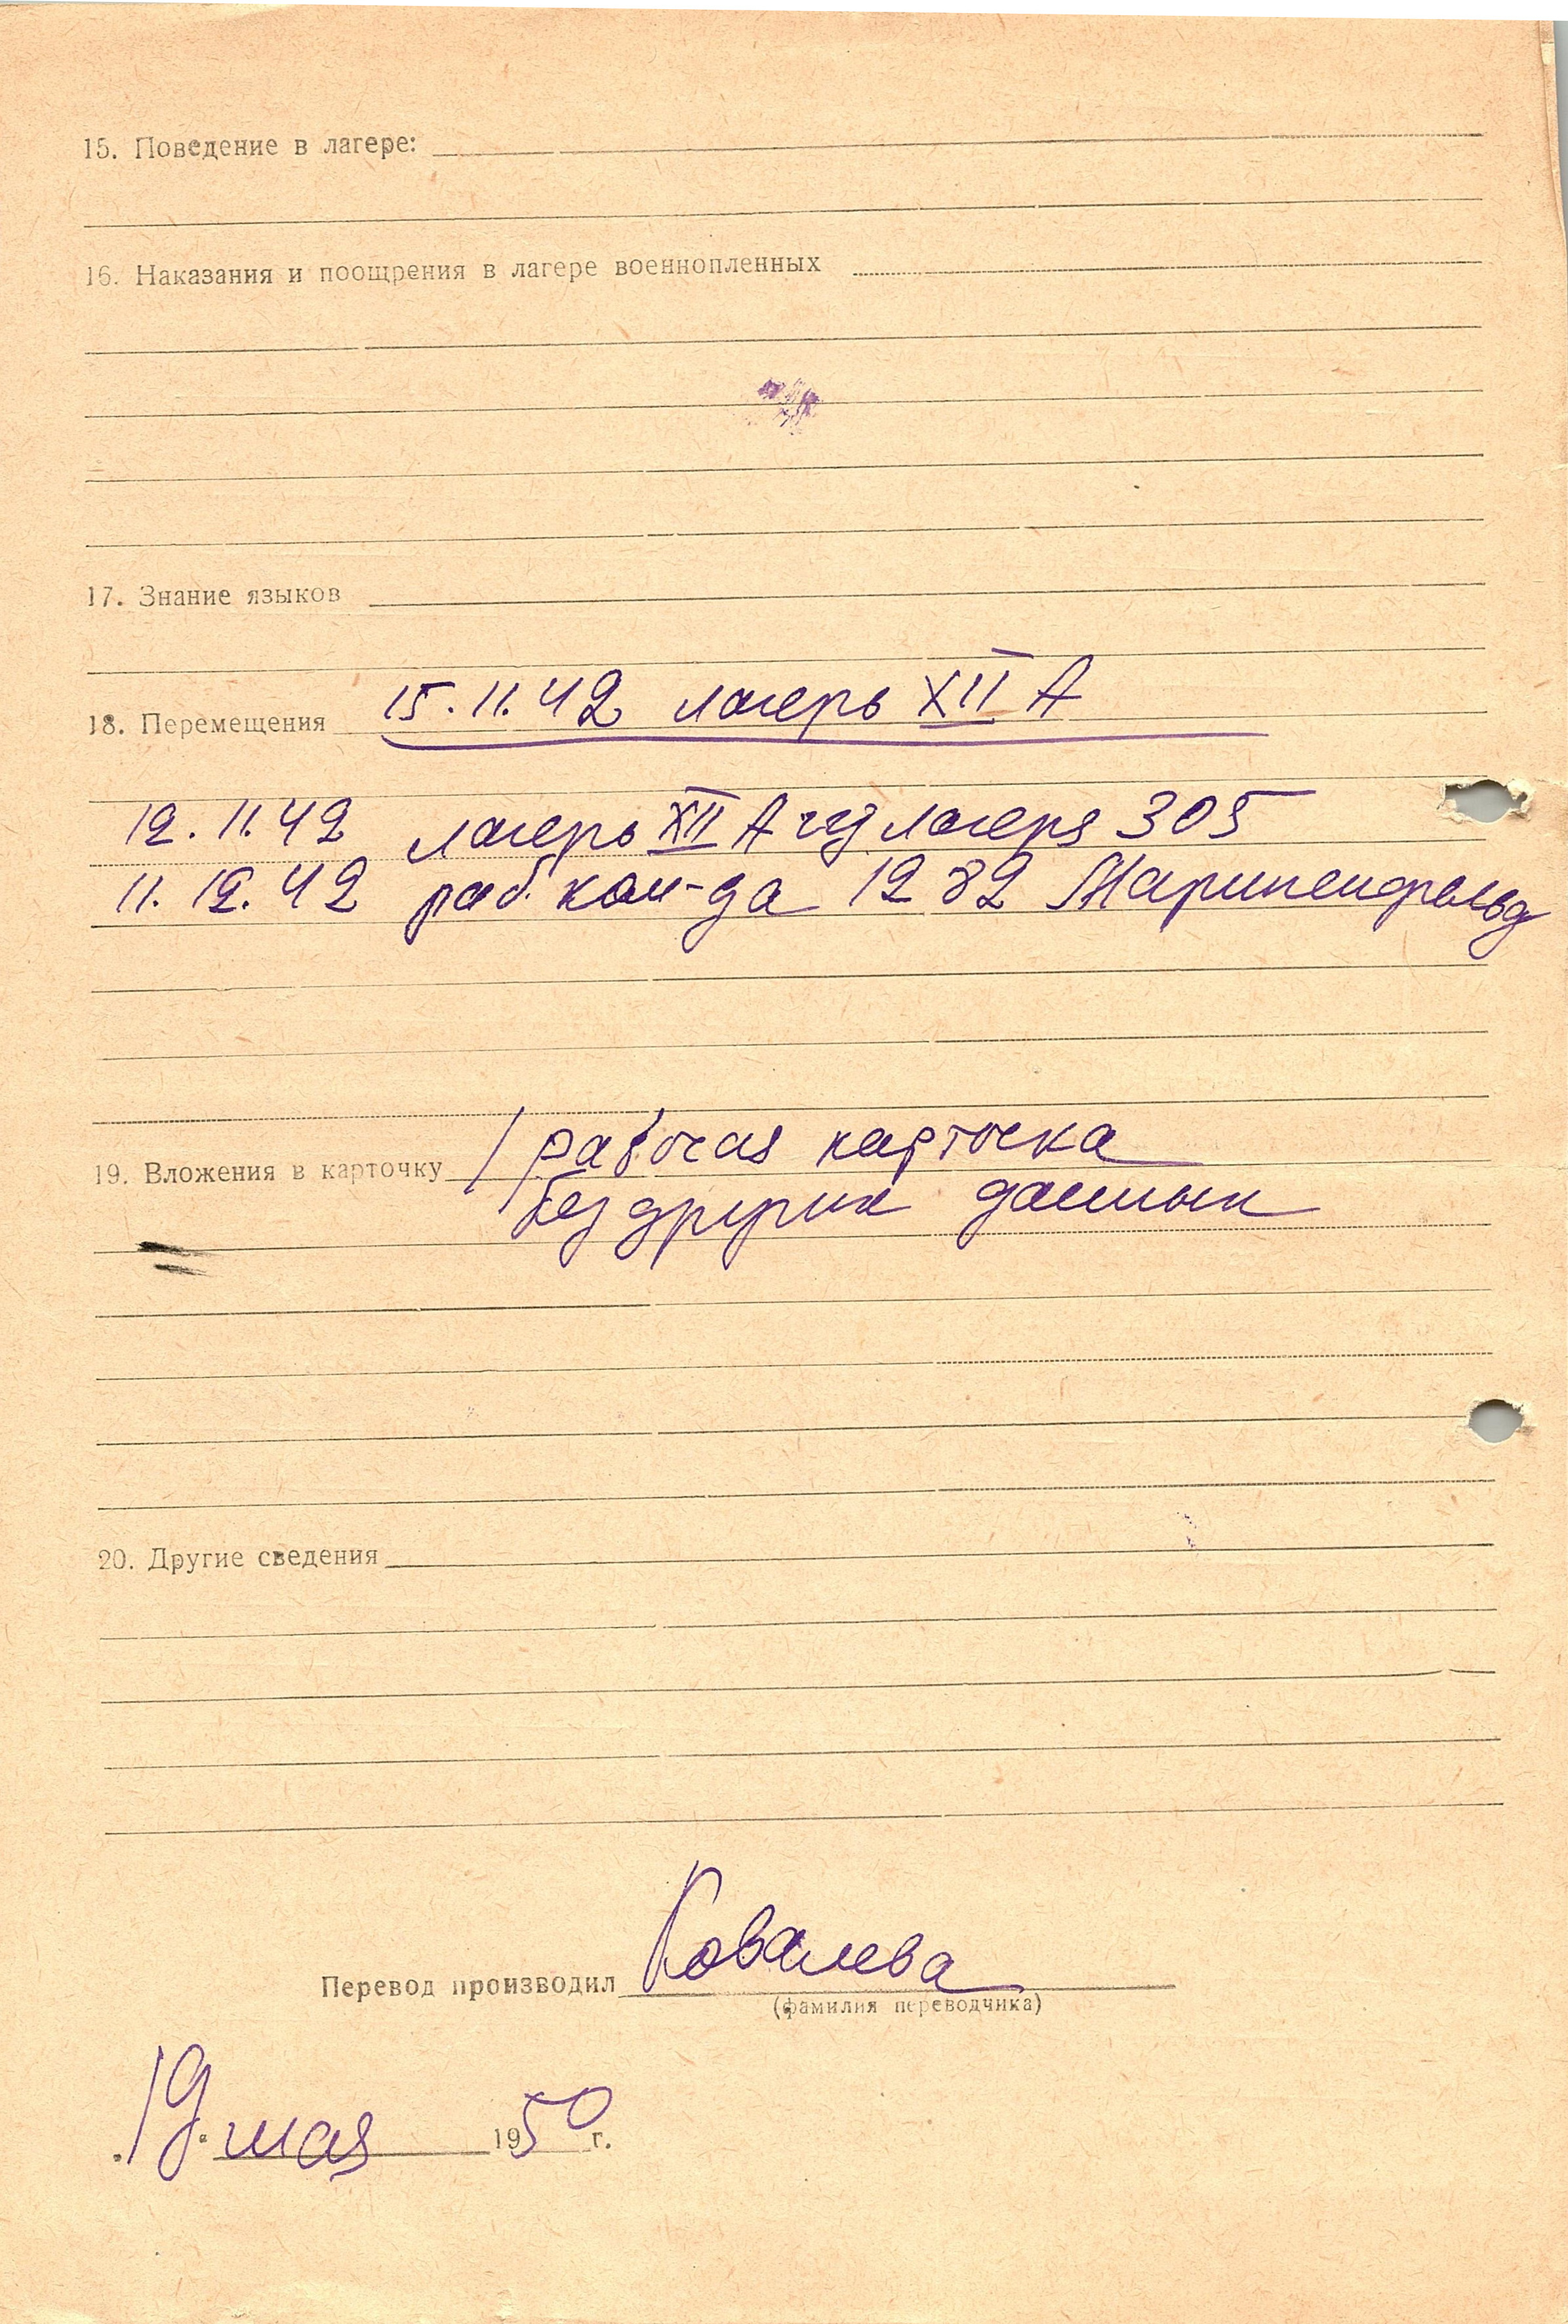 15. Поведение в лагере:
16. Наказания и поощрения в лагере военнопленных
17. Знание языков
18. Перемещения 15.11.42 лагерь XII А
12.11.42 лагерь XII А из лагеря 305
11.12.42 раб. ком-да 1282 Мариненфельд
19. Вложения в карточку / рабочая карточка
без других данных
20. Другие сведения
Перевод производил Ковалева
(фамилия переводчика)
„19“ мая 1950 г.